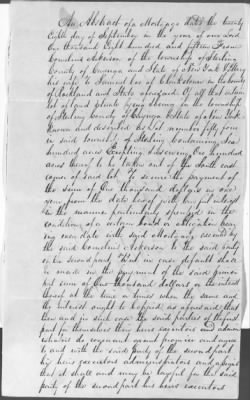 An Abstract of a Mortgage dated the twenty
fifth day of September in the year of our Lord
One thousand Eight hundred and fifteen From
Cornelius Ackerson of the township of Sterling
County of Cayuga and State of New York
to Samuel of Clarkstown in the County
of Rockland and State aforesaid. Of all that certain
lot of land situate lying & being in the township
of Sterling County of Cayuga & State of New York
known and described as Lot number fifty four
in said township of Sterling Containing Six
hundred acres Excepting & reserving One hundred
acres thereof to be taken out of the South east
corner of said lot. To secure the payment of
the sum of One thousand dollars in one
year from the date hereof with lawful interest
in the manner particularly specified in the
condition of a certain bond or obligation bear-
ing even date with said Mortgage executed by
the said Cornelius Ackerson to the said party
of the second part. That in case default shall
be made in the payment of the said princi-
pal sum of One thousand dollars or the interest
thereof at the time or times when the same and
the interest ought to be paid as aforesaid that
then and in such case the said parties of the first
part for themselves their heirs executors & admin-
istrators do covenant grant promise and agree
to and with the said party of the second part
his heirs executors administrators and assigns
that it shall and may be lawful for the said
party of the second part his heirs executors